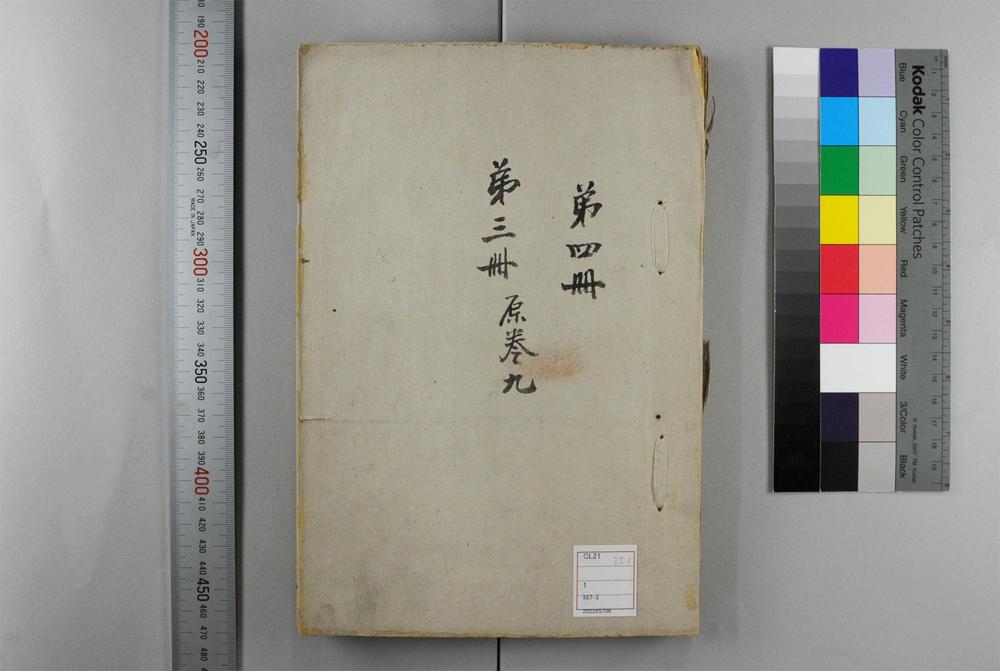 第四冊
第三冊 原巻九
CL21
221
1
987-3
202205706
Kodak Color Control Patches
Blue
Cyan
Green
Yellow
Red
Magenta
White
3/Color
Black
© Kodak, 2007 TM: Kodak
MADE IN JAPAN
190
200
210
220
230
240
250
260
270
280
290
300
310
320
330
340
350
360
370
380
390
400
410
420
430
440
450
460
470